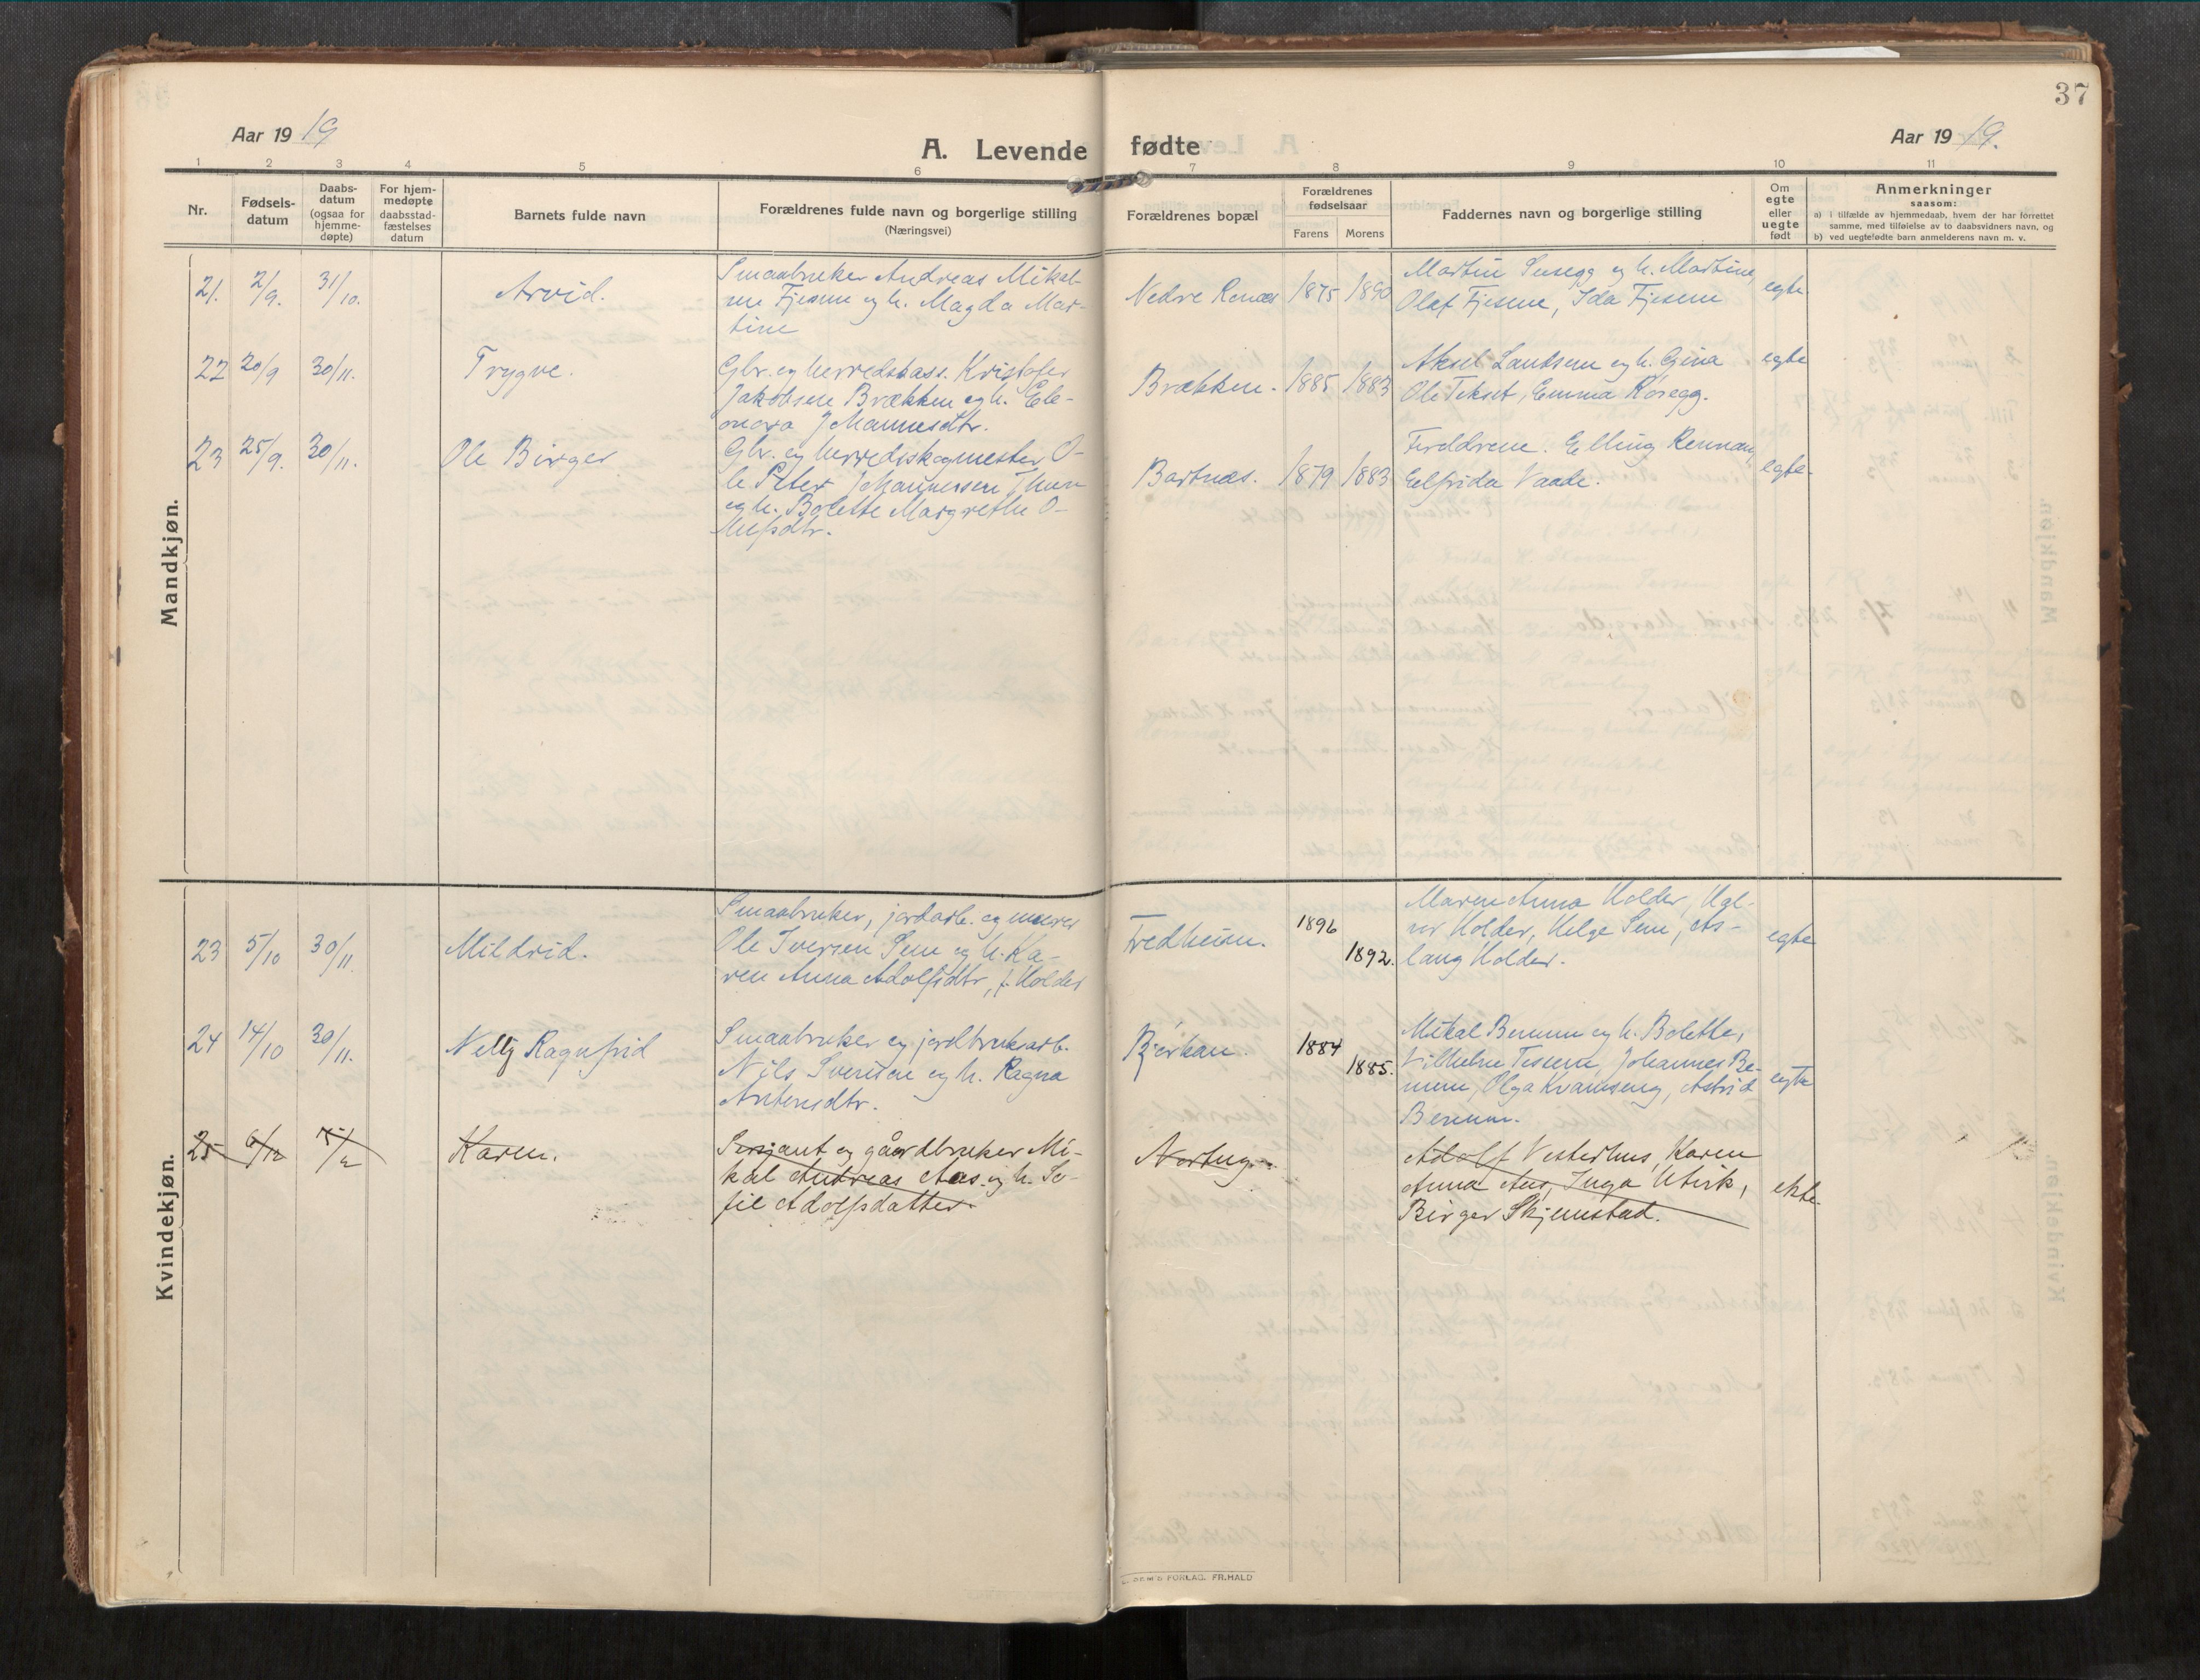 37
Aar 19 19
A. Levende fødte
Aar 19 19.
1 2 3 4 5 6 7 8 9 10 11
Nr.
Fødsels-
datum
Daabs-
datum
(ogsaa for
hjemme-
døpte)
For hjem-
medøpte
daabsstad-
fæstelses
datum
Barnets fulde navn
Forældrenes fulde navn og borgerlige stilling
(Næringsvei)
Forældrenes bopæl
Forældrenes
fødselsaar
Farens Morens
Faddernes navn og borgerlige stilling
Om
egte
eller
uegte
født
Anmerkninger
saasom:
a) i tilfælde av hjemmedaab, hvem der har forrettet
samme, med tilføielse av to daabsvidners navn, og
b) ved uegtefødte barn anmelderens navn m. v.
Mandkjøn.
21. 2/9. 31/10. Arvid.
Smaabruker Andreas Mikal-
sen Fjesme og h. Magda Mar-
tine
Nedre Renaa 1875 1890
Martin Susegg og h. Martine,
Olaf Fjesme, Ida Fjesme
egte
22 20/9 30/11. Trygve.
Gbr. og herredskass. Kristofer
Jakobsen Brækken og h. Ele-
onora Johannesdtr.
Brækken. 1885 1883
Aksel Lautsem og h. Gina
Ole Tekset, Emma Rosegg.
egte
23 25/9. 30/11. Ole Birger
Gbr. og herredsskogmester O-
le Peter Johannessen Thun
og h. Bolette Margrethe O-
lufsdtr.
Bartnes. 1879 1883
Foreldrene. Elling Rennan,
Elfrida Vaade.
egte
Kvindekjøn.
23 5/10 30/11 Mildrid.
Smaabruker, jordarb. og murer
Ole Iversen Sem og h. Ka-
ren Anna Adolfsdtr, f. Holder
Fredheim. 1896 1892.
Maren Anna Holder, Hal-
vor Holder, Helge Sem, As-
laug Holder.
egte
24 14/10 30/11. Nelly Ragnfrid
Smaabruker og jordbruksarb.
Nils Iversen og h. Ragna
Antonsdtr.
Bjerkan. 1884 1885.
Mikal Benum og h. Bolette,
Vilhelm Tessem, Johannes Be-
num, Olga Kvamseng, Astrid
Benum.
egte
25 6/12 15/2 Karen.
Sersjant og gårdbruker Mi-
kal Andreas Aas og h. So-
fie Adolfsdatter.
Nortug.
Adolf Vesterhus, Karen
Anna Aas, Inga Utvik,
Birger Skjemstad.
ekte.
FORLAG. FR.HALD